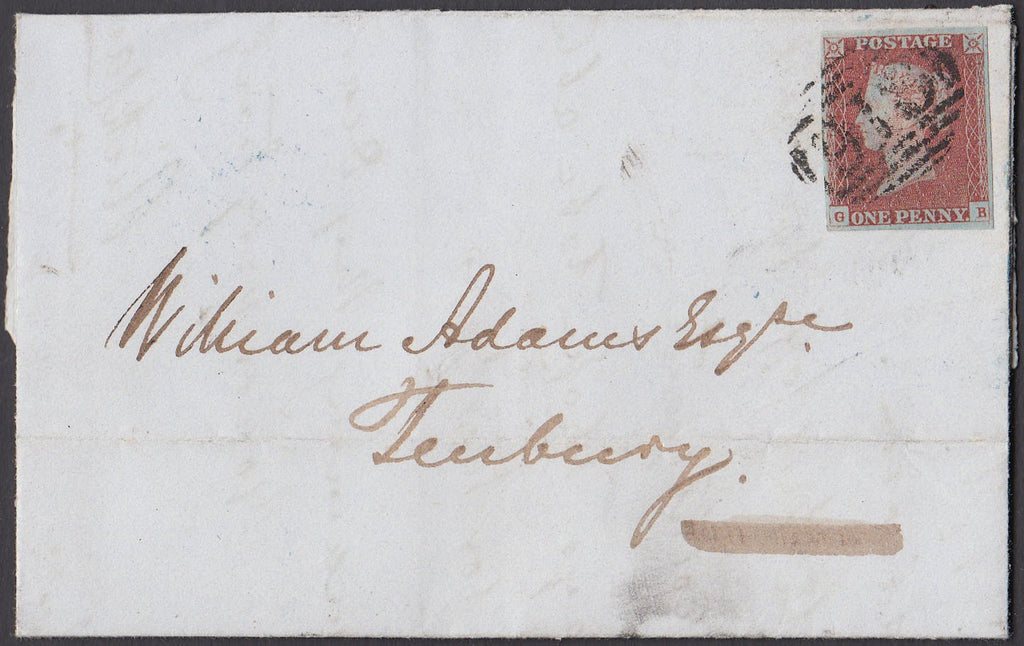 POSTAGE
G ONE PENNY. B
William Adams Esqre
Tenbury.